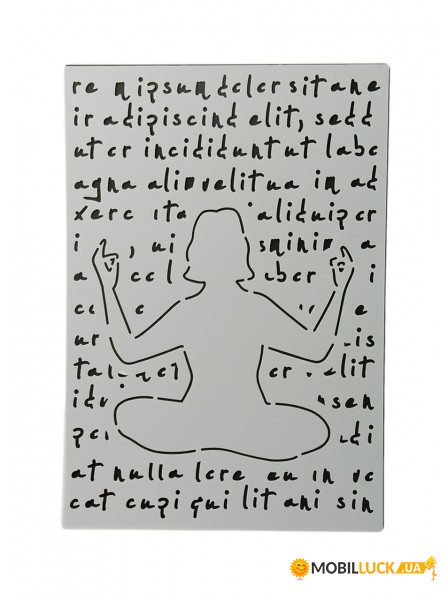 re mipsumdclcrsitane
ir adipiscind elit, sedd
ut cr incididuntut labc
agna alimvelitua im ad
xerc ita aliduipcr
i , ui sminim a
a ccl bcr i
cc c e
ur is
ta cr elit
id sen
pc di
at nulla lcre eu in vc
cat cupi qui lit ani sin
MOBILLUCK.UA